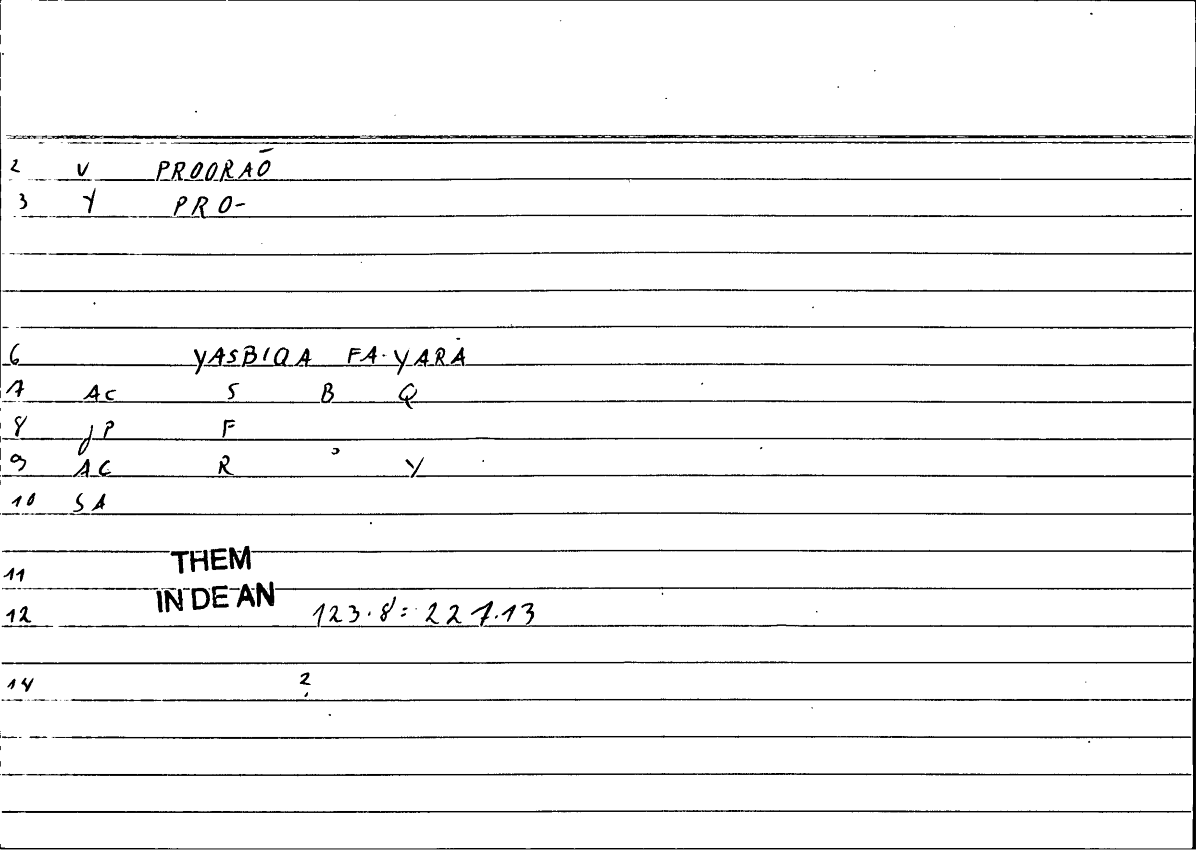 2 V PROORAŌ
3 Y PRO-
6 YASBIQA FA-YARȦ
7 AC S B Q
8 JP F
9 AC R ʾ Y
10 SA
11 THEM
12 IN DE AN 123.8 = 227.13
14 ?